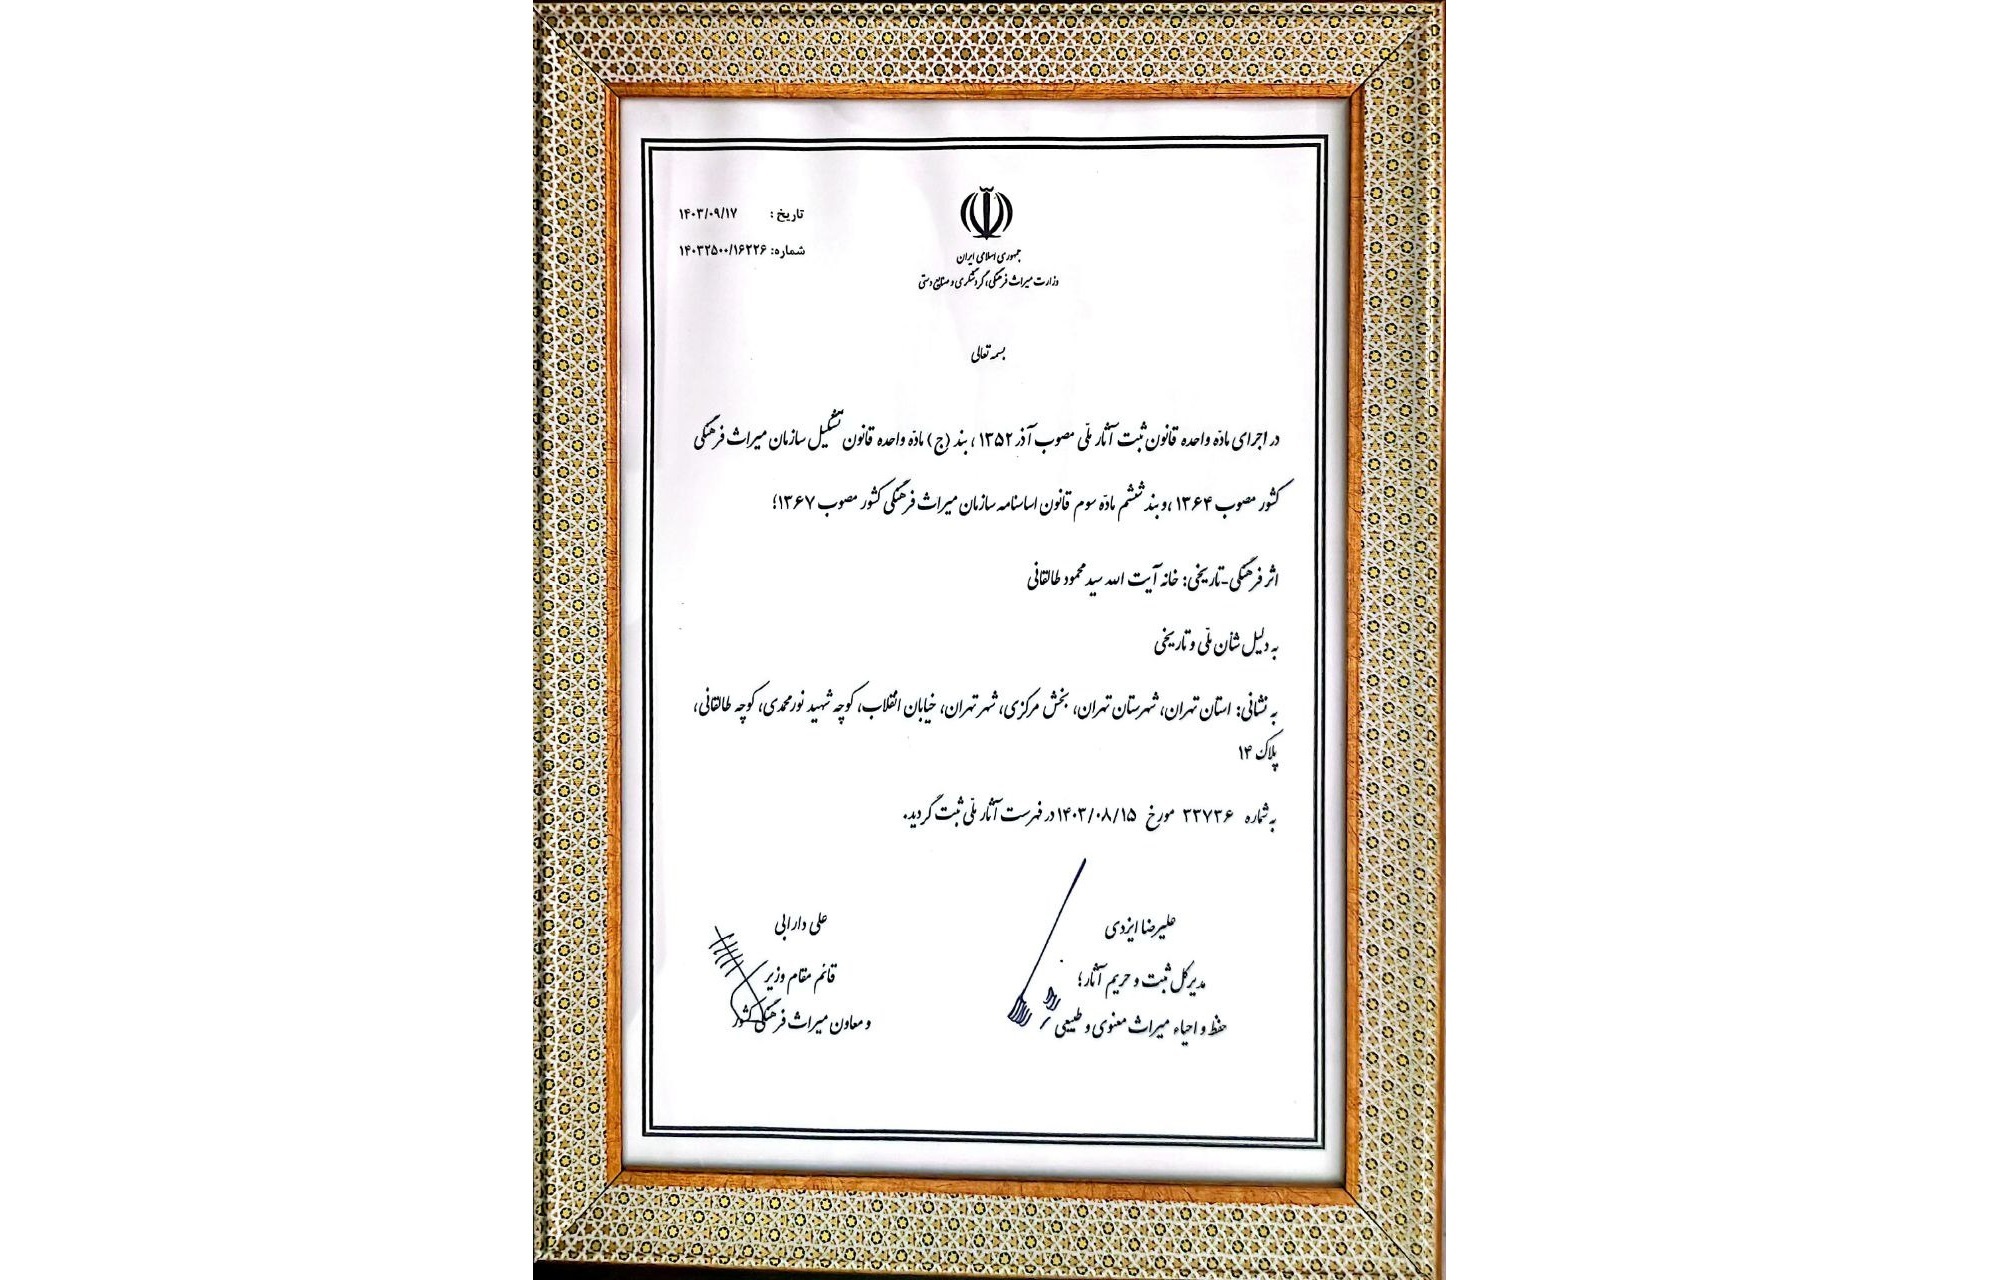 جمهوری اسلامی ایران
وزارت میراث فرهنگی، گردشگری و صنایع دستی
تاریخ : ۱۴۰۳/۰۹/۱۷
شماره: ۱۴۰۳۲۵۰۰/۱۶۲۲۶
بسمه تعالی
در اجرای مادّه واحده قانون ثبت آثار ملّی مصوب آذر ۱۳۵۲، بند (ج) مادّه واحده قانون تشکیل سازمان میراث فرهنگی
کشور مصوب ۱۳۶۴، و بند ششم مادّه سوم قانون اساسنامه سازمان میراث فرهنگی کشور مصوب ۱۳۶۷؛
اثر فرهنگی-تاریخی: خانه آیت الله سید محمود طالقانی
به دلیل شأن ملّی و تاریخی
به نشانی: استان تهران، شهرستان تهران، بخش مرکزی، شهر تهران، خیابان انقلاب، کوچه شهید نورمحمدی، کوچه طالقانی،
پلاک ۱۴
به شماره ۳۳۷۳۶ مورخ ۱۴۰۳/۰۸/۱۵ در فهرست آثار ملّی ثبت گردید.
علیرضا ایزدی
مدیرکل ثبت و حریم آثار؛
حفظ و احیاء میراث معنوی و طبیعی
علی دارابی
قائم مقام وزیر
و معاون میراث فرهنگی کشور